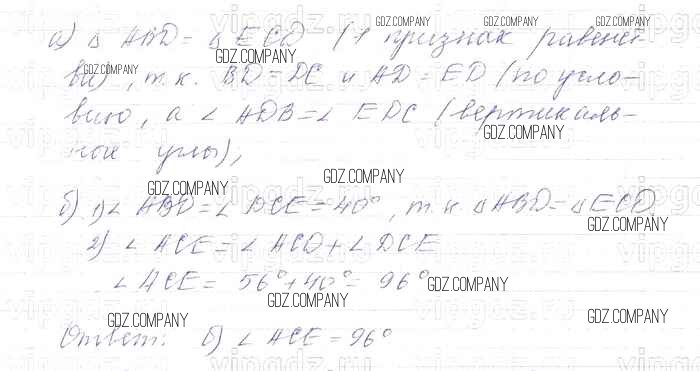 а) △ ABD = △ ECD (1 признак равенст-
ва), т.к. BD = DC и AD = ED (по усло-
вию, а ∠ ADB = ∠ EDC (вертикаль-
ные углы),
б) 1) ∠ ABD = ∠ DCE = 40°, т.к. △ ABD = △ ECD.
2) ∠ ACE = ∠ ACD + ∠ DCE
∠ ACE = 56° + 40° = 96°
Ответ: б) ∠ ACE = 96°
GDZ.COMPANY
GDZ.COMPANY
GDZ.COMPANY
GDZ.COMPANY
GDZ.COMPANY
GDZ.COMPANY
GDZ.COMPANY
GDZ.COMPANY
GDZ.COMPANY
GDZ.COMPANY
GDZ.COMPANY
GDZ.COMPANY
GDZ.COMPANY